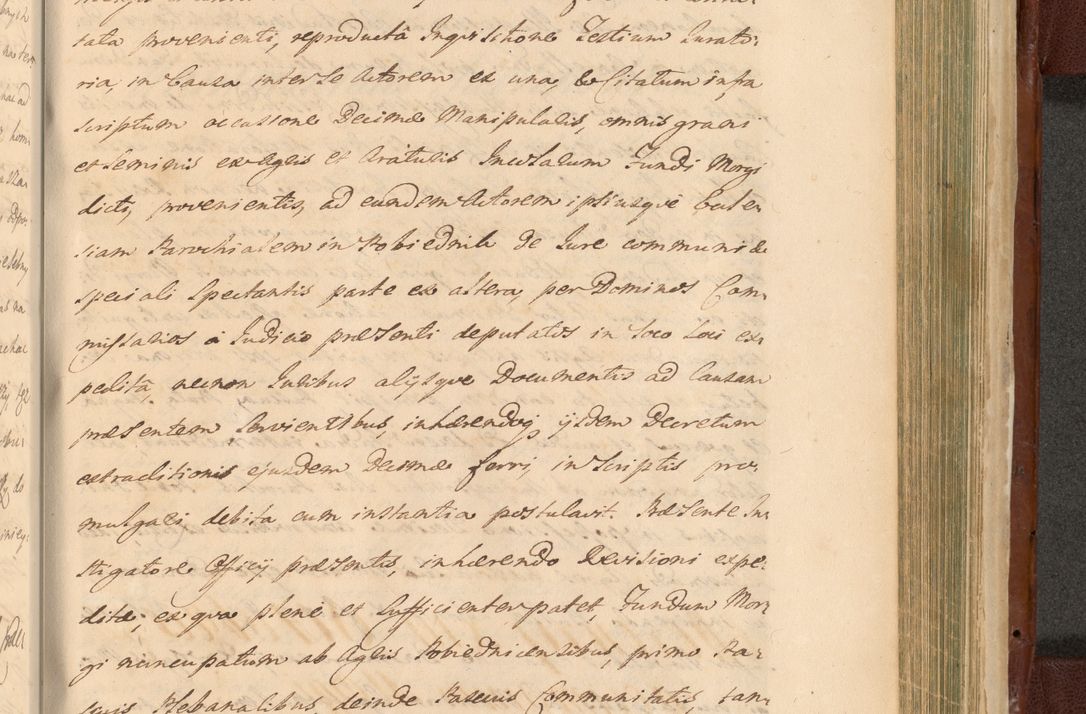 tata provenienti, reproductâ Inquisitione Testium Jurato-
ria, in Causa inter se Actorem ex una, & Citatum infra
scriptum occasione Decimae Manipularis, omnis grani
et seminis ex Agris et Araturis Incolarum Fundi Morgi
dicti, provenientis, ad eundem Actorem ipsiusque Eccle-
siam Parochialem in Pobiednik de Jure communi &
speciali spectantis parte ex altera, per Dominos Com-
missarios a Judicio praesenti deputatos in loco loci ex-
pedita, necnon Juribus alijsque Documentis ad Causam
praesentem servientibus, inhaerendo ijsdem Decretum
extraditionis ejusdem Decimae ferri, in scriptis pro-
mulgari, debita cum instantia postulavit. Praesente In-
stigatore Officij praesentis, inhaerendo Revisioni expe-
ditae; ex qua plene et sufficienter patet, Fundum Mor-
gi nuncupatum ab Agris Pobiednicensibus, primo Pas-
cuis Plebanalibus, deinde Pascuis Communitatis, tan-